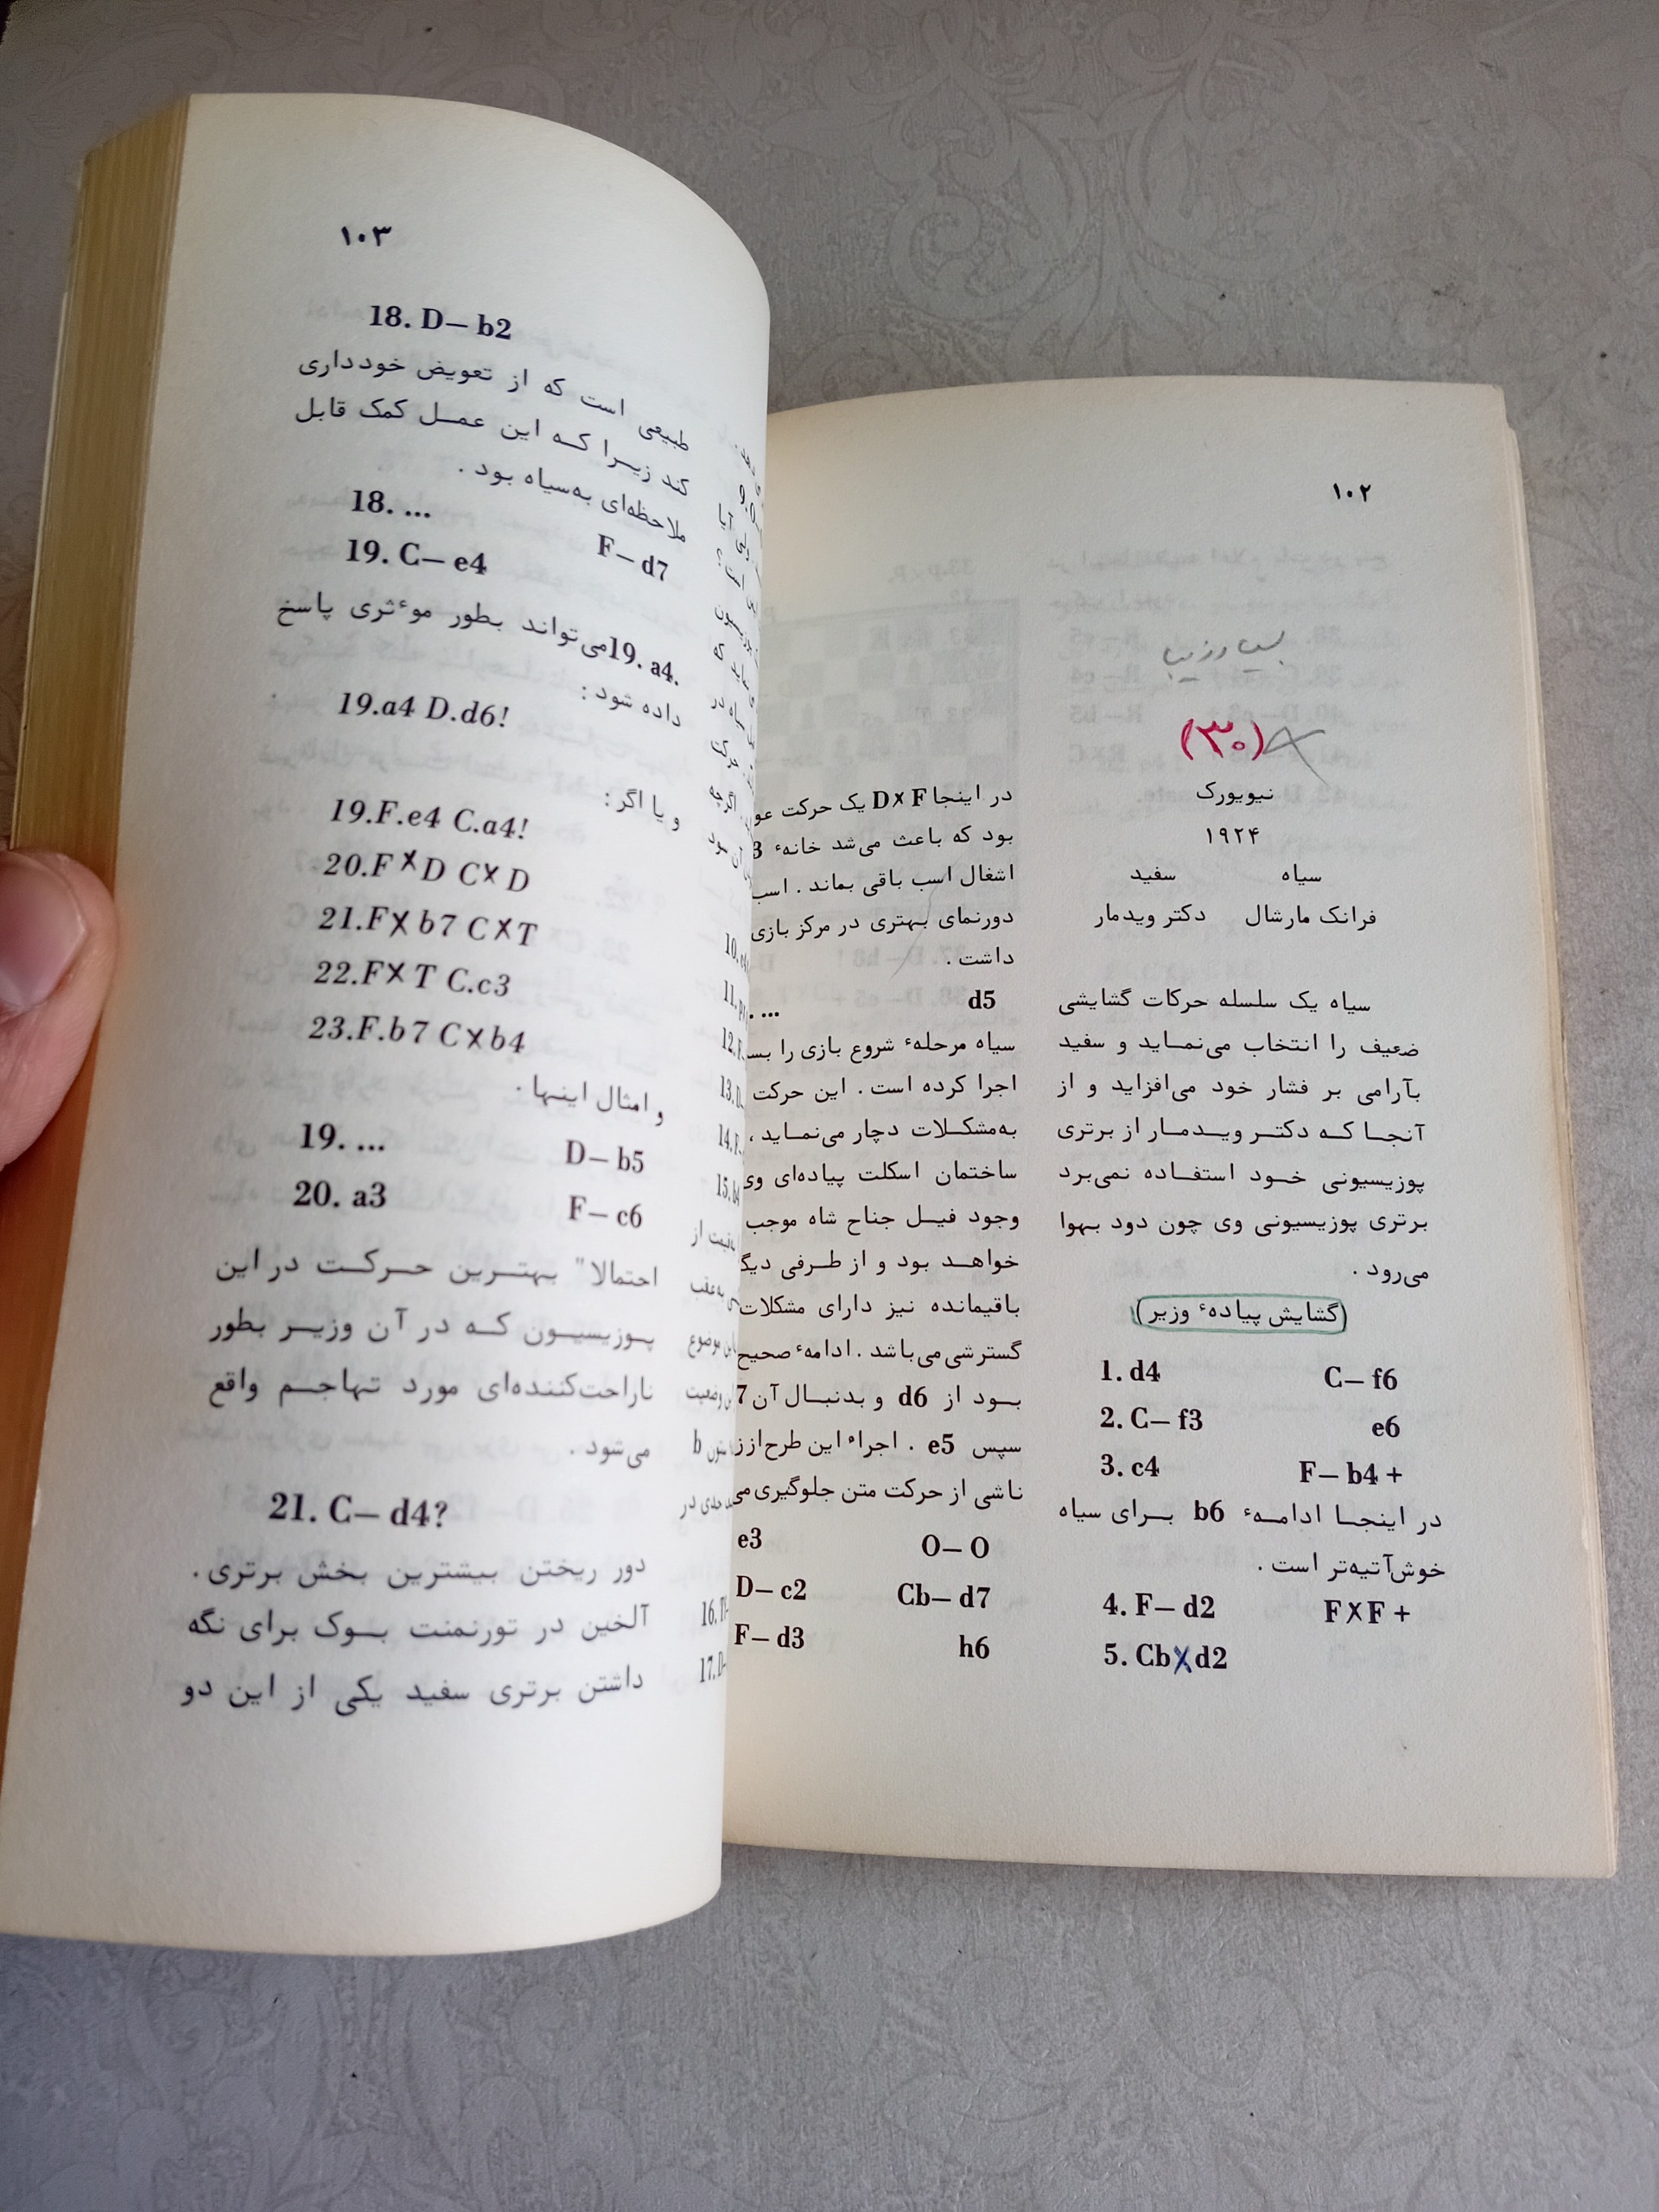 ۱۰۲
بسیار زیبا
(۳۰)
نیویورک
۱۹۲۴
سیاه سفید
فرانک مارشال دکتر ویدمار
سیاه یک سلسله حرکات گشایشی
ضعیف را انتخاب می‌نماید و سفید
بآرامی بر فشار خود می‌افزاید و از
آنجا که دکتر ویدمار از برتری
پوزیسیونی خود استفاده نمی‌برد
برتری پوزیسیونی وی چون دود بهوا
می‌رود .
(گشایش پیادهٔ وزیر)
1. d4 C– f6
2. C– f3 e6
3. c4 F– b4 +
در اینجا ادامهٔ b6 برای سیاه
خوش‌آتیه‌تر است .
4. F– d2 F X F +
5. Cb X d2
در اینجا D X F یک حرکت
بود که باعث می‌شد خانهٔ 3
اشغال اسب باقی بماند . اسب
دورنمای بهتری در مرکز بازی
داشت .
... d5
سیاه مرحلهٔ شروع بازی را
اجرا کرده است . این حرکت
به‌مشکلات دچار می‌نماید ،
ساختمان اسکلت پیاده‌ای وی
وجود فیل جناح شاه موجب
خواهد بود و از طرفی
باقیمانده نیز دارای مشکلات
گسترشی می‌باشد . ادامهٔ صحیح
بود از d6 و بدنبال آن 7
سپس e5 . اجراء این طرح از
ناشی از حرکت متن جلوگیری
e3 O– O
D– c2 Cb– d7
F– d3 h6
۱۰۳
18. D– b2
طبیعی است که از تعویض خودداری
کند زیرا که این عمل کمک قابل
ملاحظه‌ای به‌سیاه بود .
18. ... F– d7
19. C– e4
19. a4. می‌تواند بطور موءثری پاسخ
داده شود :
19.a4 D.d6!
و یا اگر :
19.F.e4 C.a4!
20.F X D C X D
21.F X b7 C X T
22.F X T C.c3
23.F.b7 C X b4
و امثال اینها .
19. ... D– b5
20. a3 F– c6
احتمالا" بهترین حرکت در این
پوزیسیون که در آن وزیر بطور
ناراحت‌کننده‌ای مورد تهاجم واقع
می‌شود .
21. C– d4?
دور ریختن بیشترین بخش برتری .
آلخین در تورنمنت بوک برای نگه
داشتن برتری سفید یکی از این دو